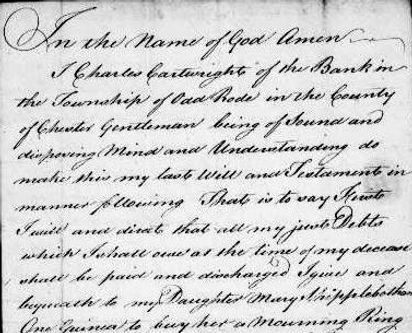 In the Name of God Amen
I Charles Cartwright of the Bank in
the Township of Odd Rode in the County
of Chester Gentleman being of Sound and
disposing Mind and Understanding do
make this my last Will and Testament in
manner following That is to say First
I will and direct that all my just Debts
which I shall owe at the time of my decease
shall be paid and discharged I give and
bequeath to my Daughter Mary
One Guinea to buy her a Mourning Ring